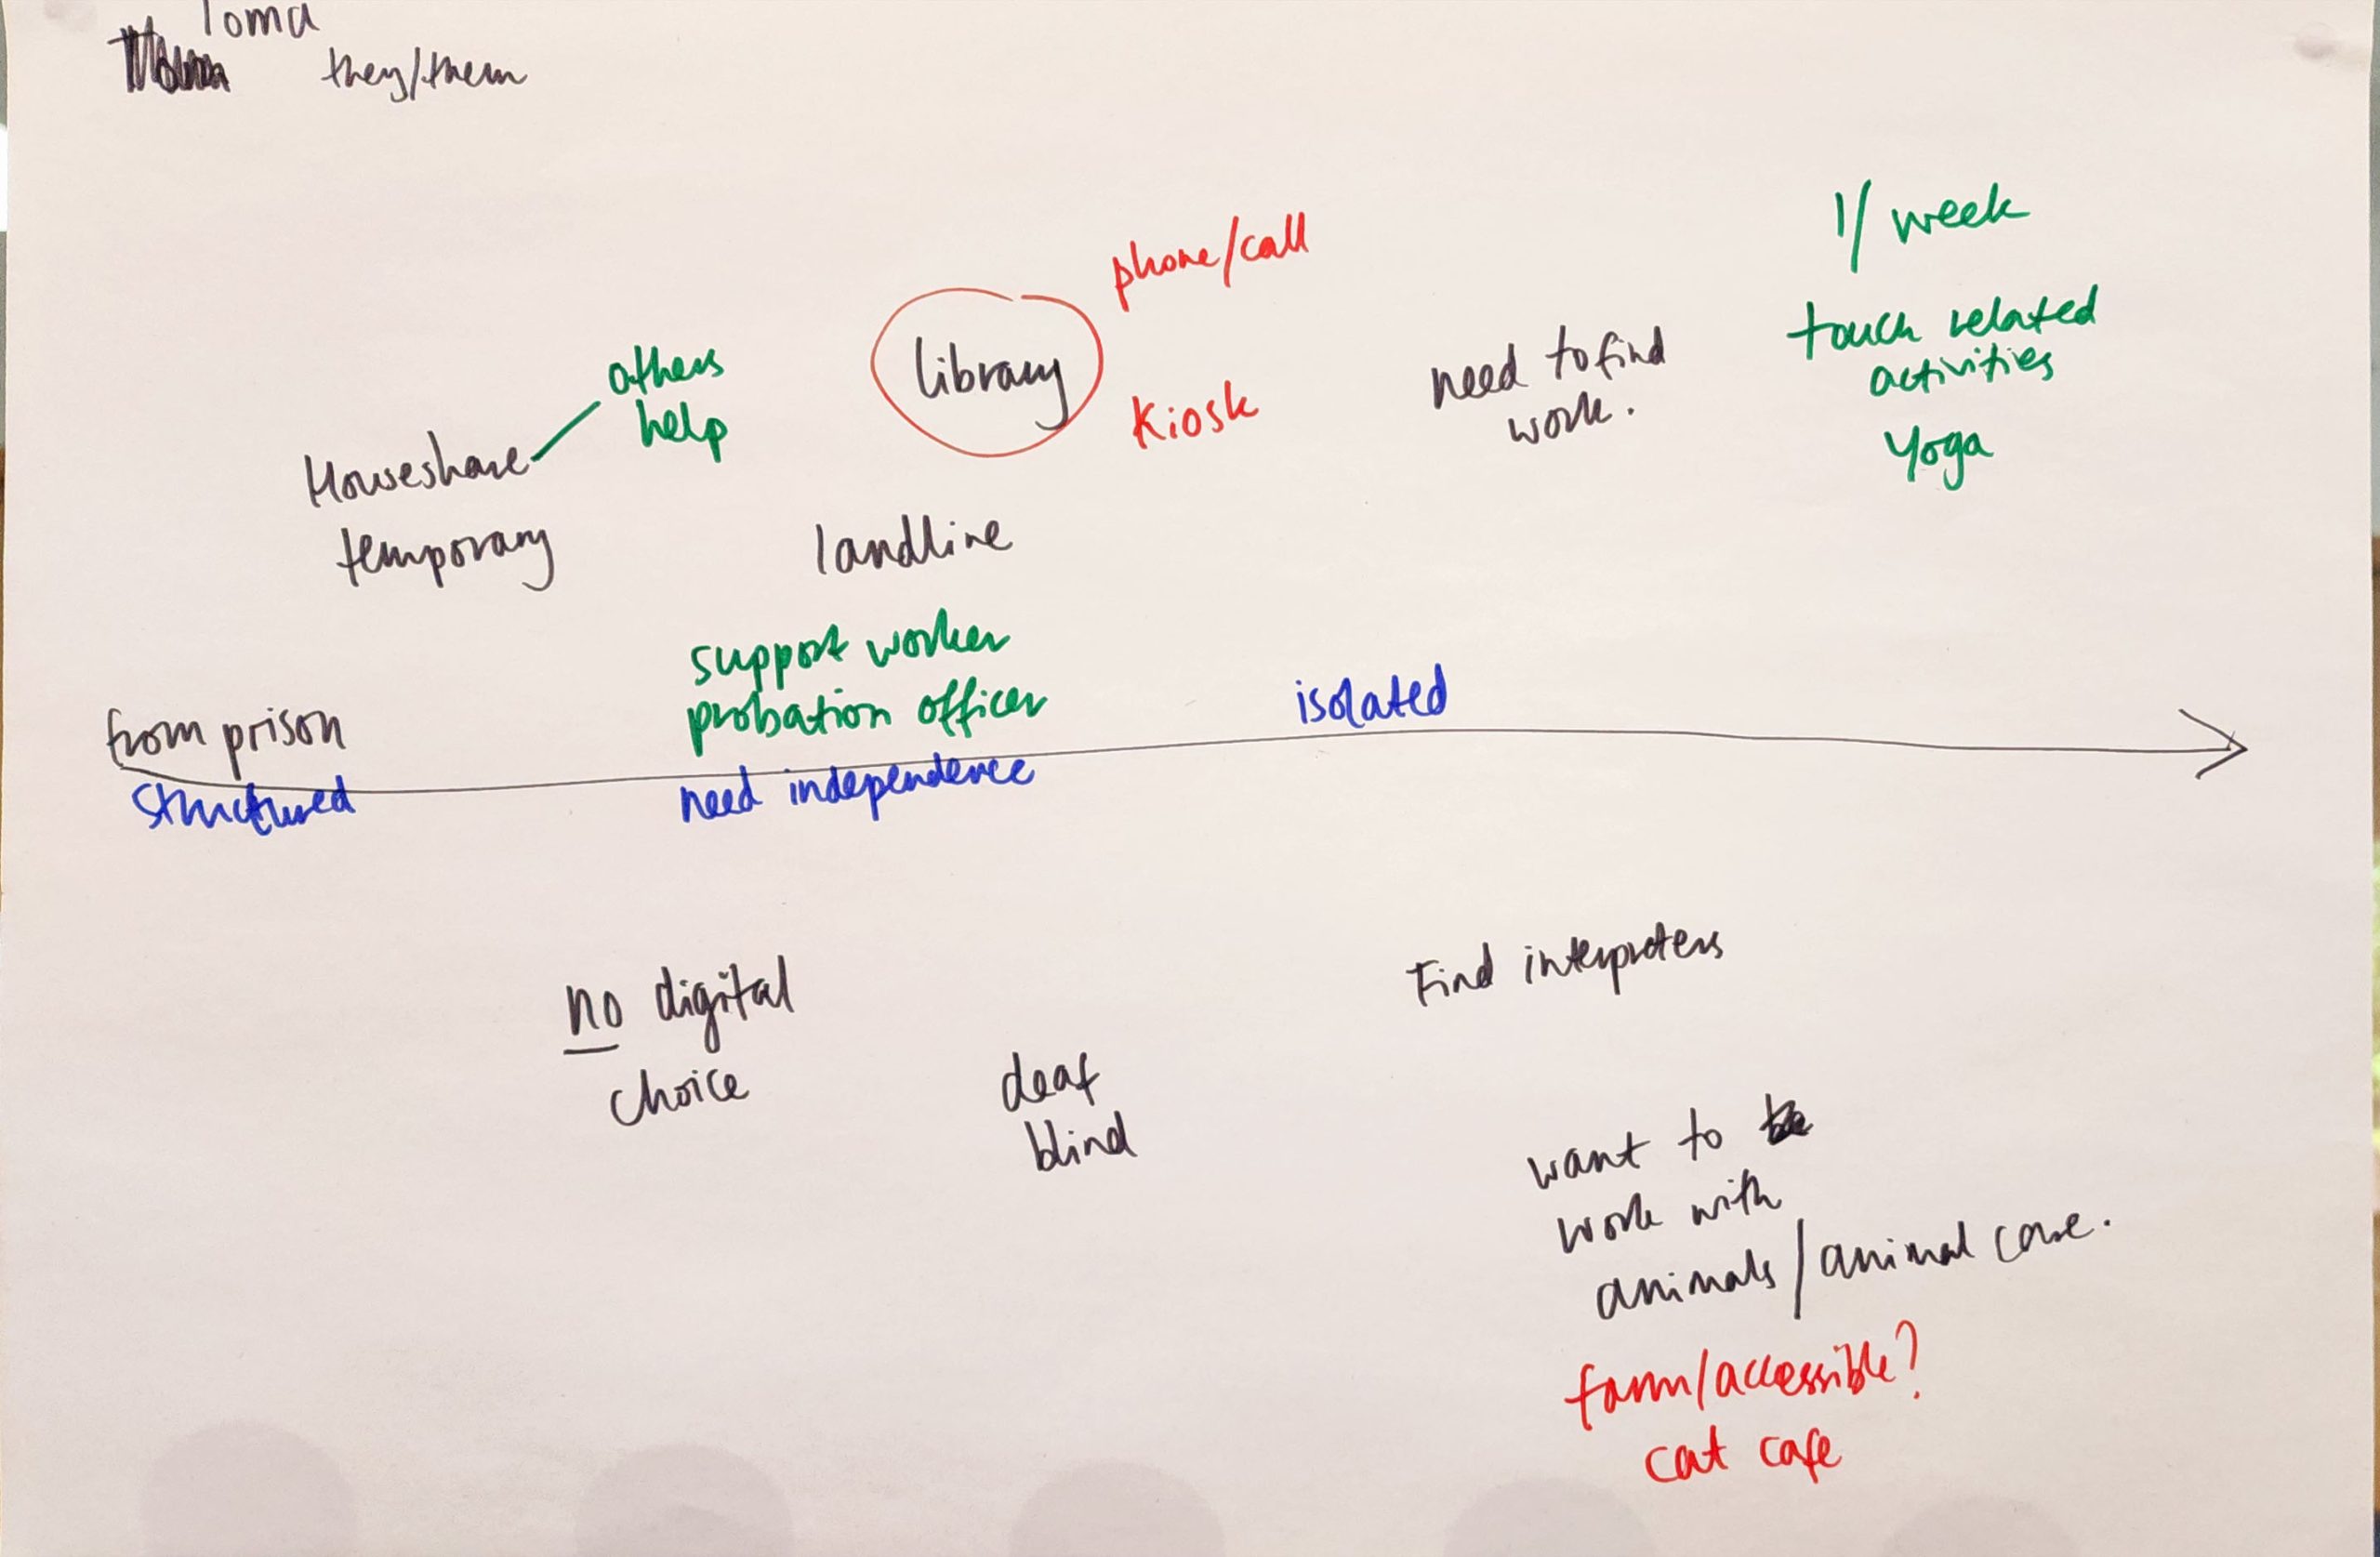 Toma
they/them
1/ week
touch related
activities
Yoga
phone/call
library
Kiosk
need to find
work.
others
help
Houseshare
temporary
landline
support worker
probation officer
isolated
from prison
structured
need independence
no digital
choice
deaf
blind
Find interpreters
want to
work with
animals/animal care.
farm/accessible?
cat cafe